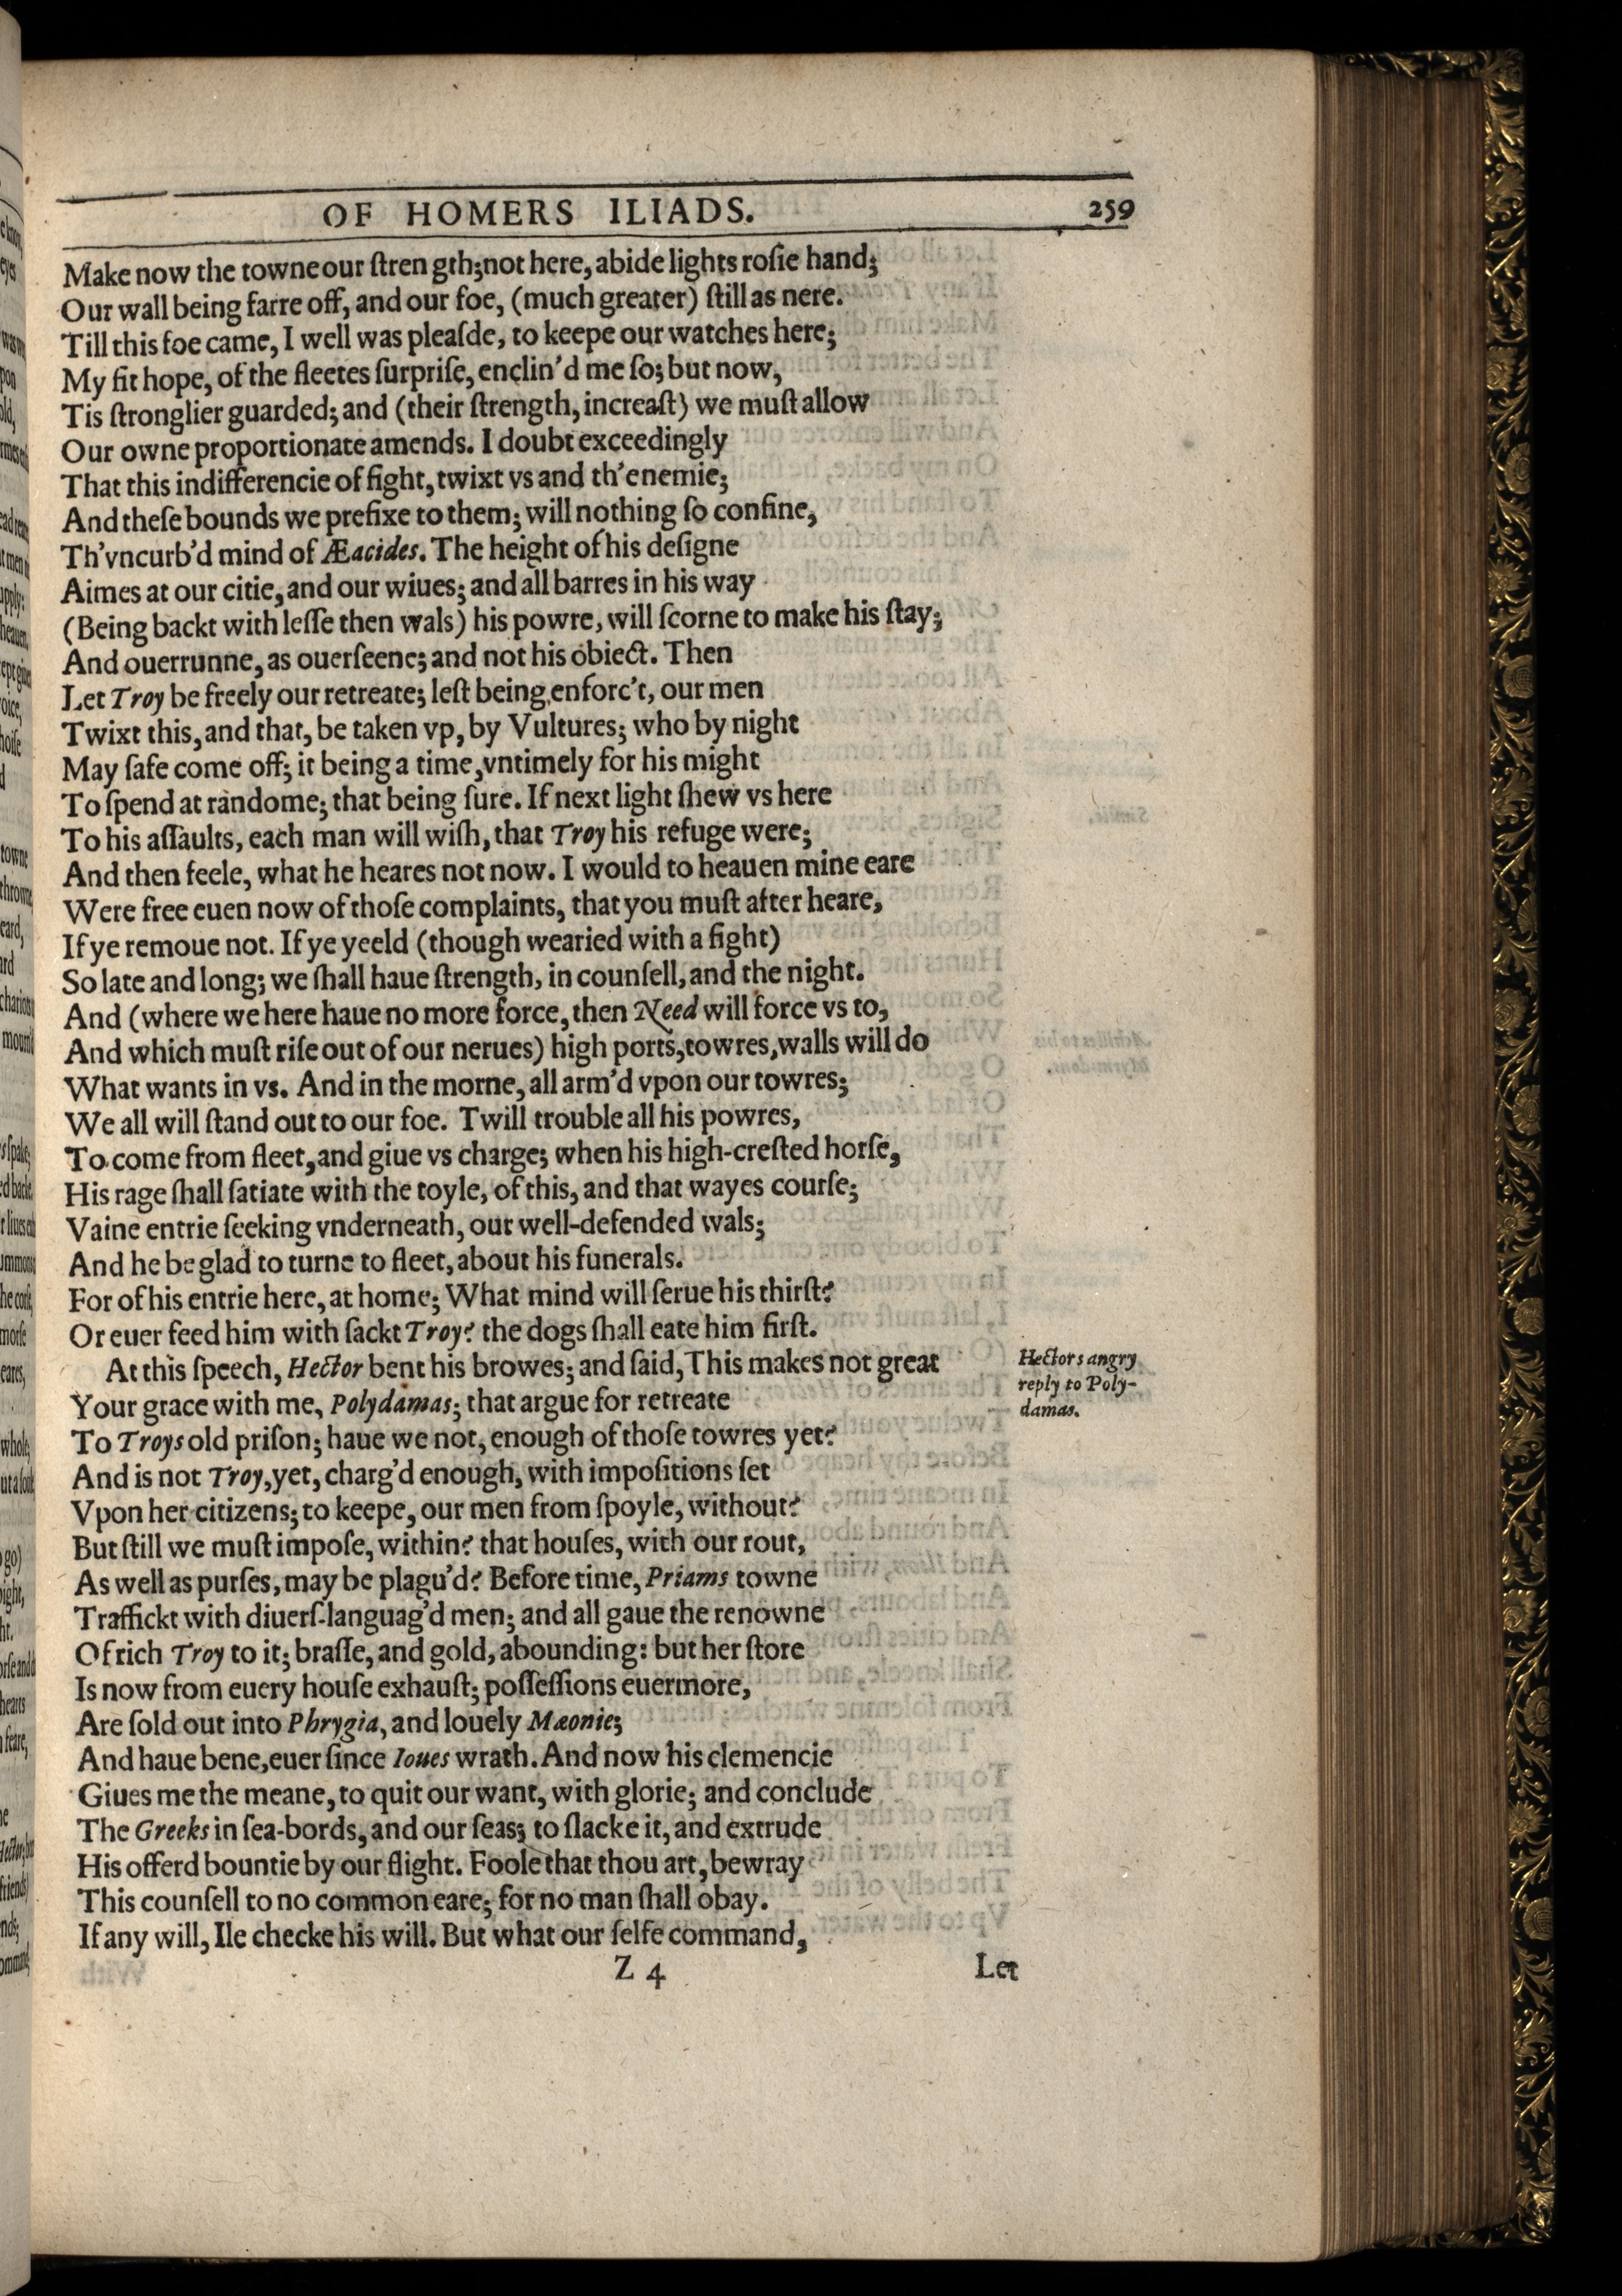 OF HOMERS ILIADS. 259
Make now the towne our ſtren gth; not here, abide lights roſie hand;
Our wall being farre off, and our foe, (much greater) ſtill as nere.
Till this foe came, I well was pleaſde, to keepe our watches here;
My fit hope, of the fleetes ſurpriſe, enclin'd me ſo; but now,
Tis ſtronglier guarded; and (their ſtrength, increaſt) we muſt allow
Our owne proportionate amends. I doubt exceedingly
That this indifferencie of fight, twixt vs and th'enemie;
And theſe bounds we prefixe to them; will nothing ſo confine,
Th'vncurb'd mind of Æacides. The height of his deſigne
Aimes at our citie, and our wiues; and all barres in his way
(Being backt with leſſe then wals) his powre, will ſcorne to make his ſtay;
And ouerrunne, as ouerſeene; and not his obiect. Then
Let Troy be freely our retreate; leſt being enforc't, our men
Twixt this, and that, be taken vp, by Vultures; who by night
May ſafe come off; it being a time, vntimely for his might
To ſpend at randome; that being ſure. If next light ſhew vs here
To his aſſaults, each man will wiſh, that Troy his refuge were;
And then feele, what he heares not now. I would to heauen mine eare
Were free euen now of thoſe complaints, that you muſt after heare,
If ye remoue not. If ye yeeld (though wearied with a fight)
So late and long; we ſhall haue ſtrength, in counſell, and the night.
And (where we here haue no more force, then Need will force vs to,
And which muſt riſe out of our nerues) high ports, towres, walls will do
What wants in vs. And in the morne, all arm'd vpon our towres;
We all will ſtand out to our foe. Twill trouble all his powres,
To come from fleet, and giue vs charge; when his high-creſted horſe,
His rage ſhall ſatiate with the toyle, of this, and that wayes courſe;
Vaine entrie ſeeking vnderneath, our well-defended wals;
And he be glad to turne to fleet, about his funerals.
For of his entrie here, at home; What mind will ſerue his thirſt?
Or euer feed him with ſackt Troy? the dogs ſhall eate him firſt.
At this ſpeech, Hector bent his browes; and ſaid, This makes not great
Your grace with me, Polydamas; that argue for retreate
To Troys old priſon; haue we not, enough of thoſe towres yet?
And is not Troy, yet, charg'd enough, with impoſitions ſet
Vpon her citizens; to keepe, our men from ſpoyle, without?
But ſtill we muſt impoſe, within? that houſes, with our rout,
As well as purſes, may be plagu'd? Before time, Priams towne
Traffickt with diuerſ-languag'd men; and all gaue the renowne
Of rich Troy to it; braſſe, and gold, abounding: but her ſtore
Is now from euery houſe exhauſt; poſſeſſions euermore,
Are ſold out into Phrygia, and louely Mæonie;
And haue bene, euer ſince Ioues wrath. And now his clemencie
Giues me the meane, to quit our want, with glorie; and conclude
The Greeks in ſea-bords, and our ſeas; to ſlacke it, and extrude
His offerd bountie by our flight. Foole that thou art, bewray
This counſell to no common eare; for no man ſhall obay.
If any will, Ile checke his will. But what our ſelfe command,
Z 4 Let
Hectors angry
reply to Poly-
damas.